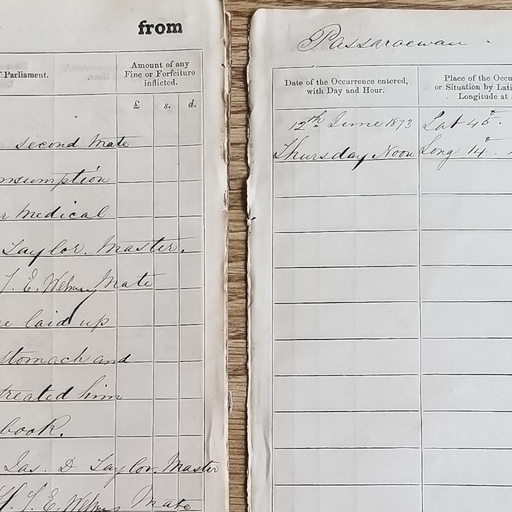 from
Parliament.
Amount of any
Fine or Forfeiture
inflicted.
£ s. d.
second Mate
nsumption
r Medical
Taylor. Master.
Mate
e laid up
stomach and
treated him
book.
Jas. D Taylor. Master
Mate
Date of the Occurrence entered,
with Day and Hour.
Place of the Occu
or Situation by Lati
Longitude at
12th June 1873 Lat 46°.
Thursday Noon Long 14°.